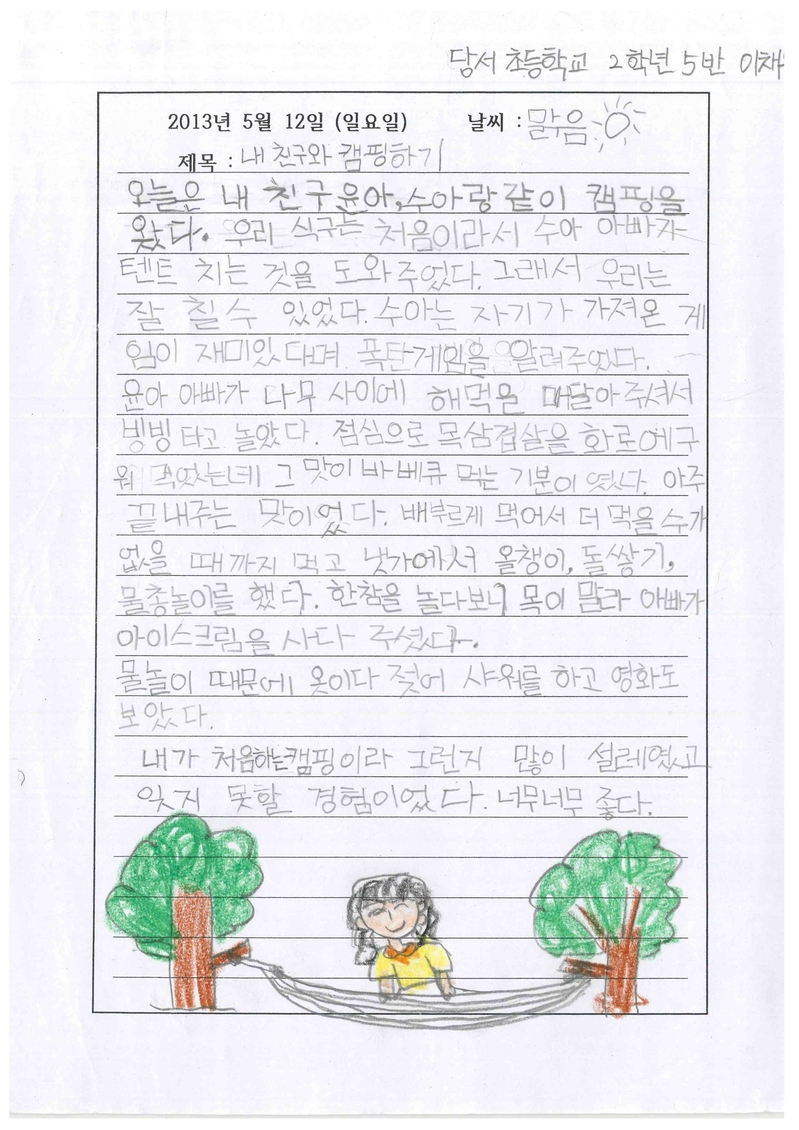 당서 초등학교 2학년 5반 이채
2013년 5월 12일 (일요일) 날씨 : 맑음
제목 : 내 친구와 캠핑하기
오늘은 내 친구 윤아,수아랑같이 캠핑을
왔다. 우리 식구는 처음이라서 수아 아빠가
텐트 치는 것을 도와주었다. 그래서 우리는
잘 칠 수 있었다. 수아는 자기가 가져온 게
임이 재미있다며 폭탄게임을 알려주었다.
윤아 아빠가 나무 사이에 해먹은 매달아주셔서
빙빙 타고 놀았다. 점심으로 목삼겹살을 화로에구
워 먹었는데 그 맛이 바베큐 먹는 기분이였다. 아주
끝내주는 맛이었다. 배부르게 먹어서 더 먹을 수가
없을 때까지 먹고 냇가에서 올챙이, 돌쌓기,
물총놀이를 했다. 한참을 놀다보니 목이 말라 아빠가
아이스크림을 사다 주셨다.
물놀이 때문에 옷이다 젖어 샤워를 하고 영화도
보았다.
내가 처음하는캠핑이라 그런지 많이 설레였고
잊지 못할 경험이었다. 너무너무 좋다.